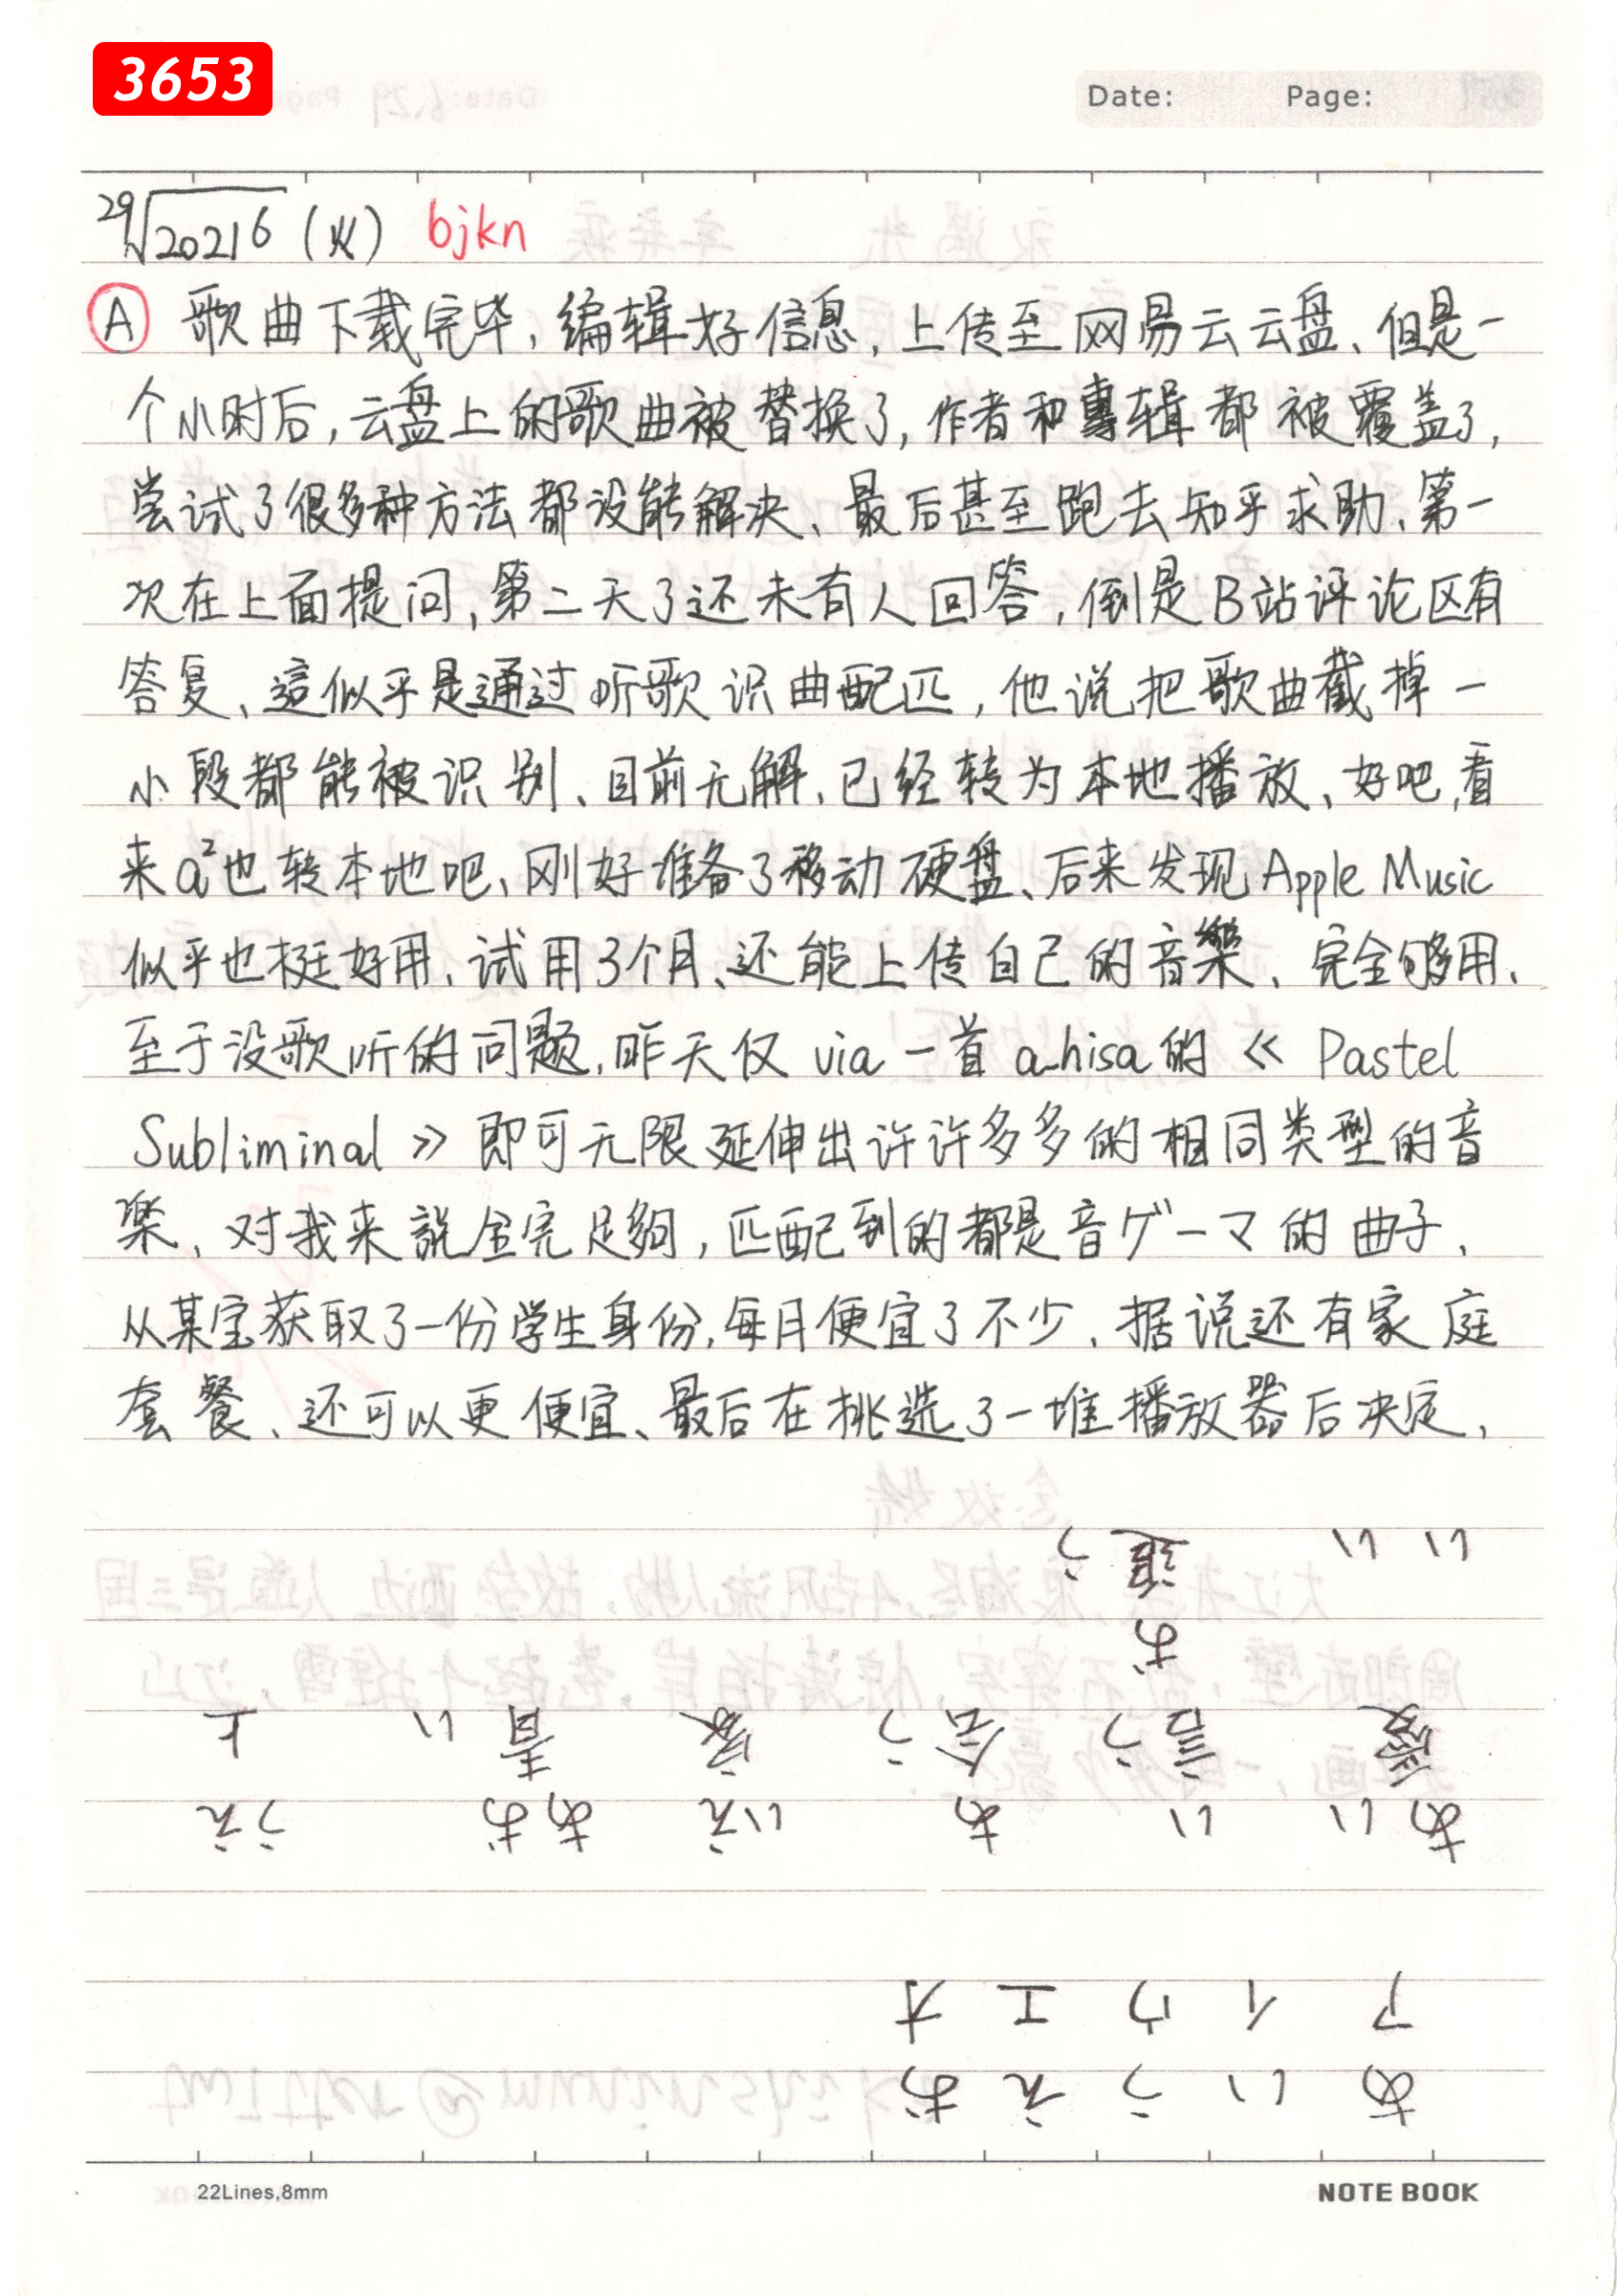 3653
Date: Page:
29√20216 (火) bjkn
A 歌曲下载完毕,编辑好信息,上传至网易云云盘、但是一
个小时后,云盘上的歌曲被替换了,作者和專辑都被覆盖了,
尝试了很多种方法都没能解决、最后甚至跑去知乎求助、第一
次在上面提问,第二天了还未有人回答,倒是B站评论区有
答复、這似乎是通过听歌识曲配匹,他说把歌曲截掉一
小段都能被识别、目前无解、已经转为本地播放、好吧,看
来a²也转本地吧、刚好准备了移动硬盘、后来发现Apple Music
似乎也挺好用、试用3个月、还能上传自己的音樂、完全够用、
至于没歌听的问题,昨天仅via一首a_hisa的《Pastel
Subliminal》即可无限延伸出许许多多的相同类型的音
楽、对我来說全完足夠,匹配到的都是音ゲーマ的曲子、
从某宝获取了一份学生身份,每月便宜了不少、据说还有家庭
套餐、还可以更便宜、最后在挑选了一堆播放器后决定、
あ い う え お
ア イ ウ エ オ
あい いう あう いえ あおい うえ
愛 言う 会う 家 青い 上
お
いい 追う
22Lines,8mm
NOTE BOOK